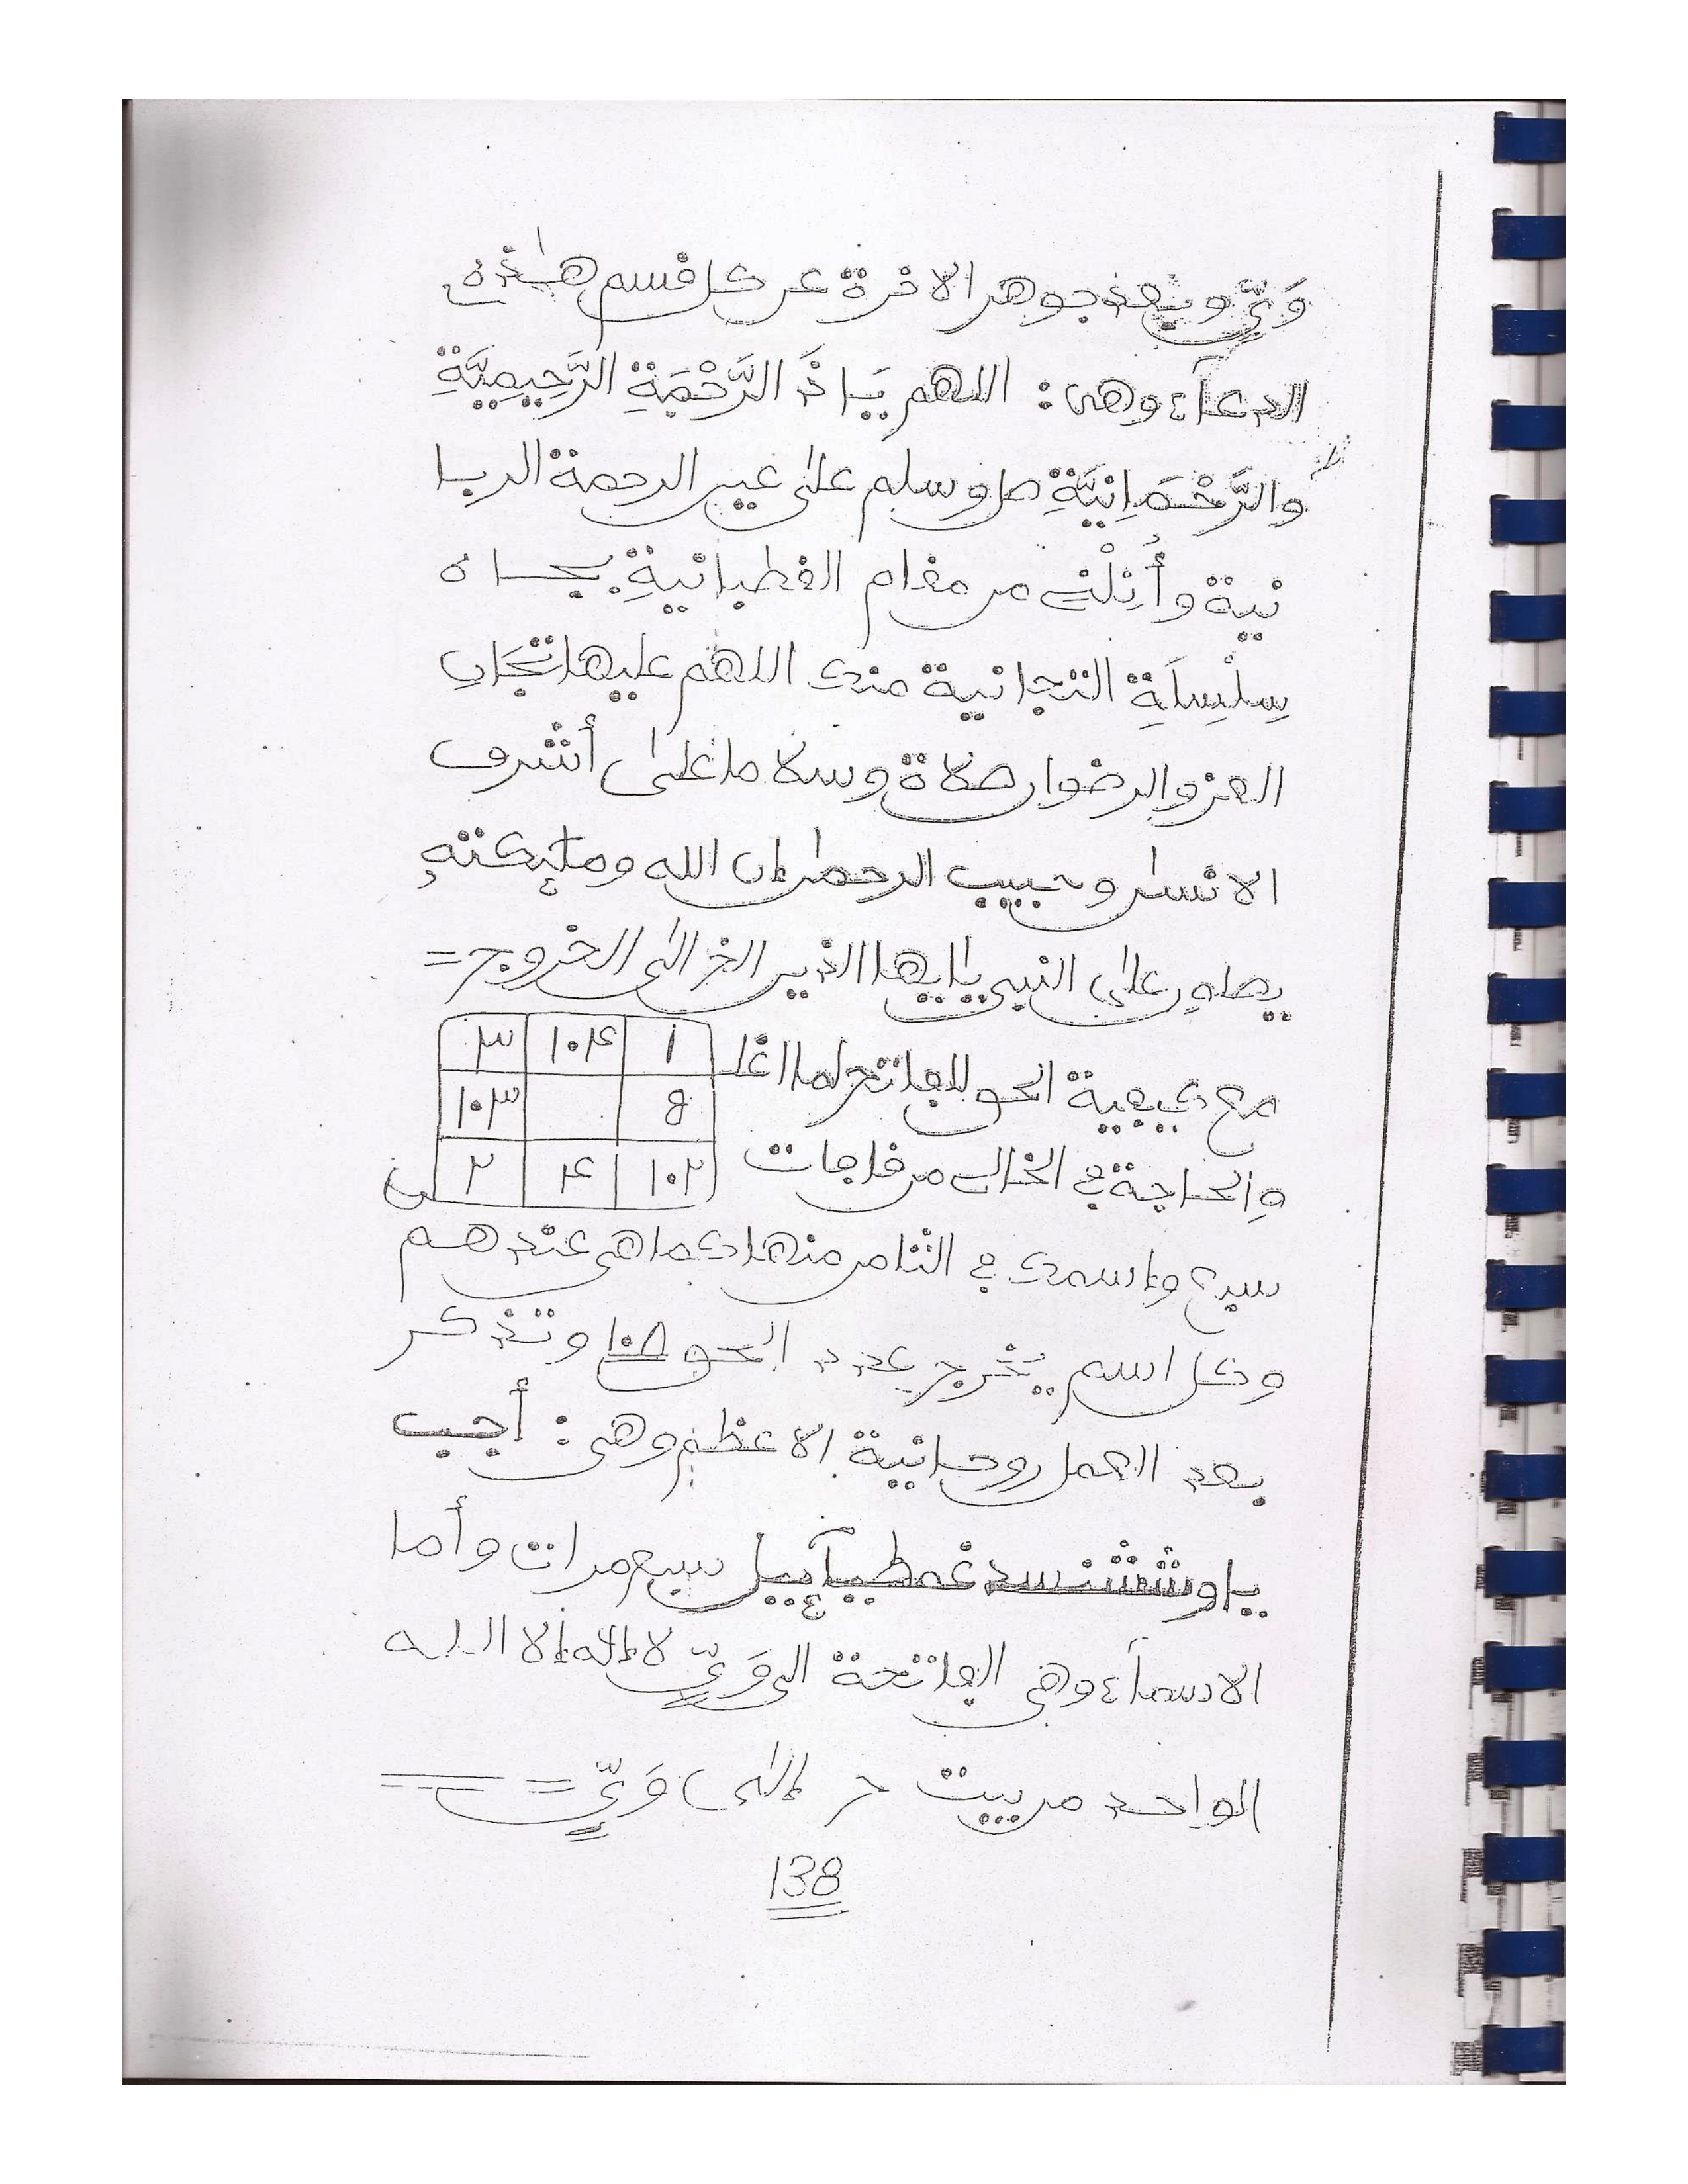 وَيِّ وبعد جوهر الاخرة عن كل قسم هذه
الدعآء وهى: اللهم يَا ذَ الرَّحْمَةِ الرَّحِيمِيَّةِ
والرَّحْمَانِيَّةِ صل وسلم على عين الرحمة الربا
نية وأَنِلْنِى من مقام القطبانيةِ بجاه
سِلْسِلَةِ التجانية منك اللهم عليها تيجان
العز والرضوان صلاة وسلاما على أشرف
الانسٰن وحبيب الرحمٰن إن الله وملئكته
يصلون على النبى يايها الذين الخ الى الخروج =
مع كيفية الحو للفاتح لما اغلـ
١ ١٠٤ ٣
8 ١٠٣
١٠٢ ٤ ٢
والحاجة فى الخالى من قاجات
سبع واسمك فى الثامن منها كما هى عندهم
وكل اسم يخرج بعدد الحو ١٠٨ وتذكر
بعد العمل روحانية الاعظم وهى: أجب
يا وششنسدغمطيآئيل سبع مرات وأما
الاسمآء وهى الفاتحة الى وَيِّ لا إله إلا الله
الواحد من بيت ... إلى وَيِّ =
138